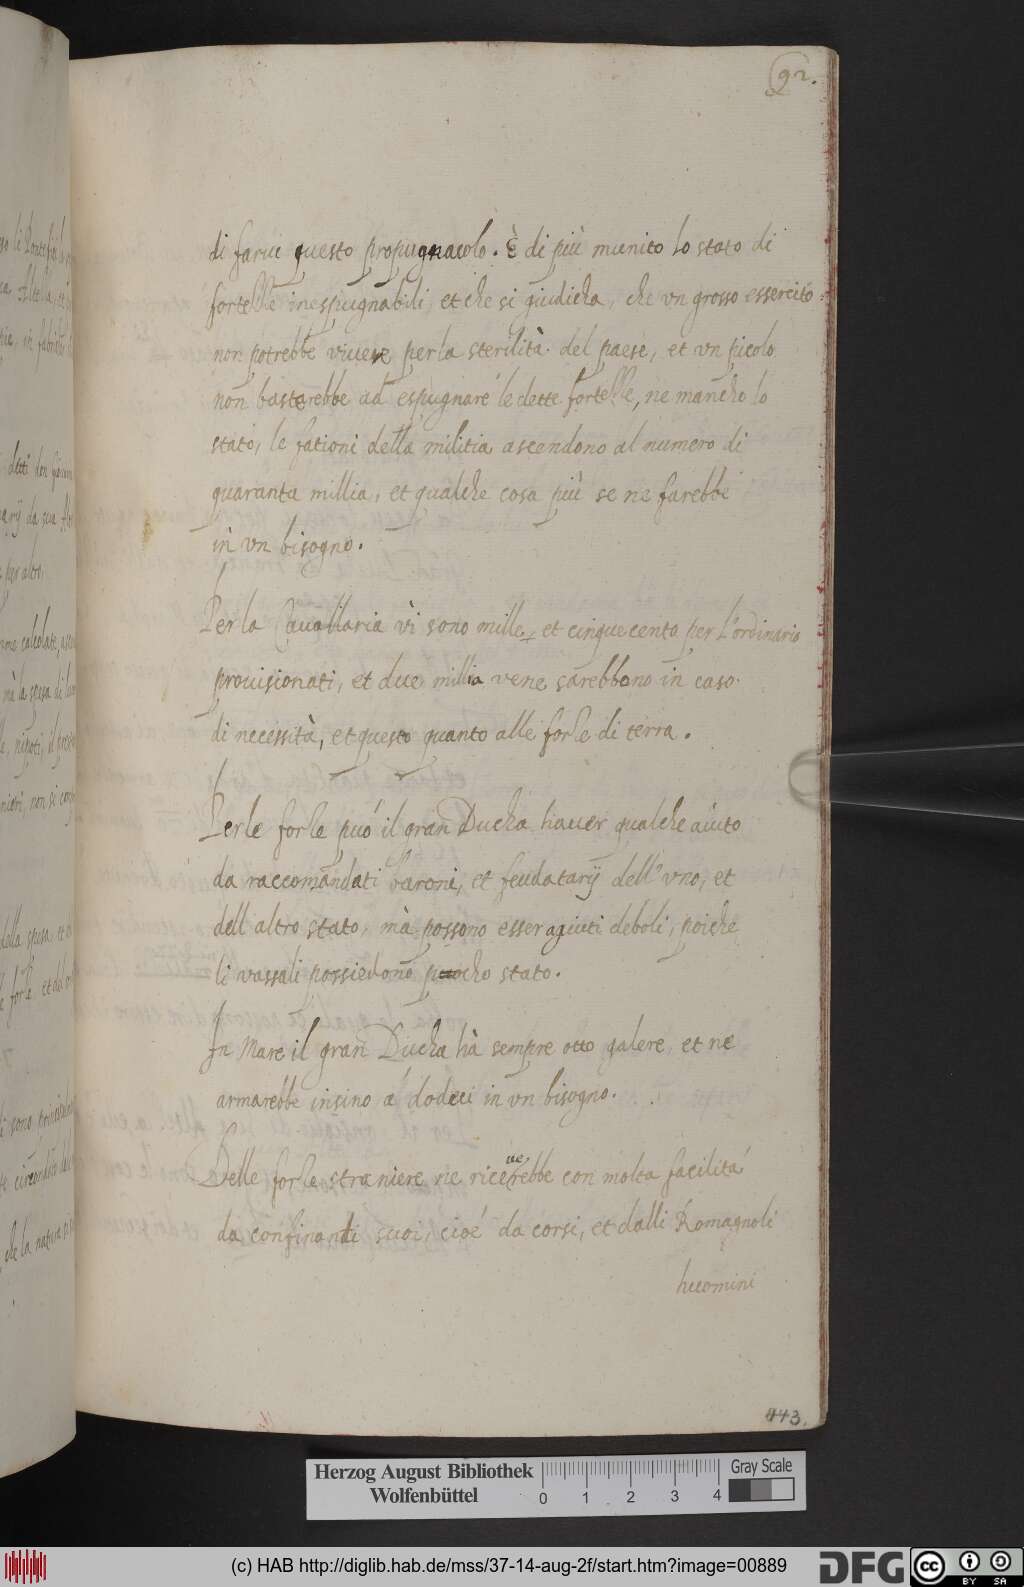 92.
di farui questo propugnacolo. È di più munito lo stato di
fortezze inespugnabili, et che si giudicha, che vn grosso essercito
non potrebbe viuere per la sterilità del paese, et vn picolo
non bastarebbe ad espugnare le dette fortezze, ne mancho lo
stato, le fationi della militia ascendono al numero di
quaranta millia, et qualche cosa più se ne farebbe
in vn bisogno.
Per la Cauallaria vi sono mille, et cinquecento per l'ordinario
prouisionati, et due millia vene sarebbono in caso
di necessità, et questo quanto alle forze di terra.
Per le forze puó il gran Ducha hauer qualche aiuto
da raccomandati baroni, et feudatarij dell'vno, et
dell altro stato, mà possono esser agiuti deboli, poiche
li vassali possiedono pocho stato.
In Mare il gran Ducha hà sempre otto galere, et ne
armarebbe insino á dodeci in vn bisogno.
Delle forze straniere ne riceuerebbe con molta facilitá
da confinanti suoi, cioé da corsi, et dalli Romagnoli
huomini
443.
Herzog August Bibliothek
Wolfenbüttel
0 1 2 3 4
Gray Scale
(c) HAB http://diglib.hab.de/mss/37-14-aug-2f/start.htm?image=00889
DFG
cc BY SA